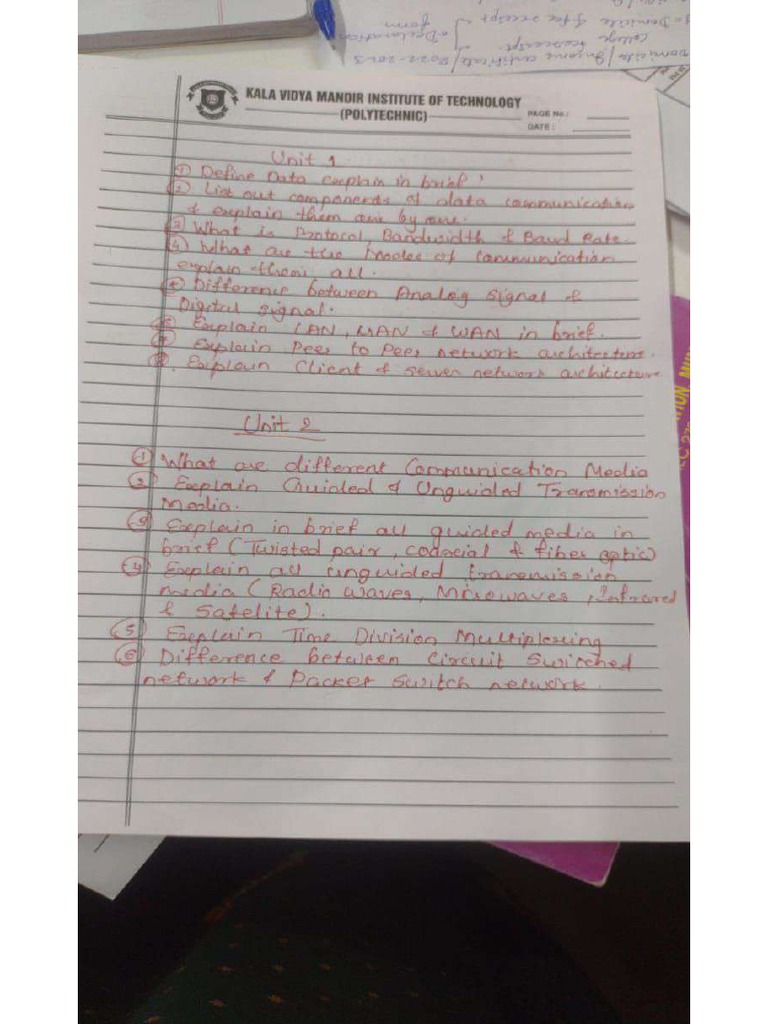 KALA VIDYA MANDIR INSTITUTE OF TECHNOLOGY
(POLYTECHNIC)
PAGE No.:
DATE :
Unit 1
① Define Data explain in brief
② List out components of data communication
& explain them one by one.
③ What is Protocol, Bandwidth & Baud Rate.
④ What are the modes of communication
explain them all.
⑤ Difference between Analog Signal &
Digital signal.
⑥ Explain LAN, MAN & WAN in brief.
⑦ Explain Peer to Peer network architecture.
⑧. Explain Client & server network architecture
Unit 2
① What are different Communication Media
② Explain Guided & Unguided Transmission
Media.
③ Explain in brief all guided media in
brief (Twisted pair, coaxial & fiber optic)
④ Explain all unguided transmission
media (Radio waves, Microwaves, Infrared
& Satelite).
⑤ Explain Time Division Multiplexing
⑥ Difference between Circuit Switched
network & Packet Switch network.